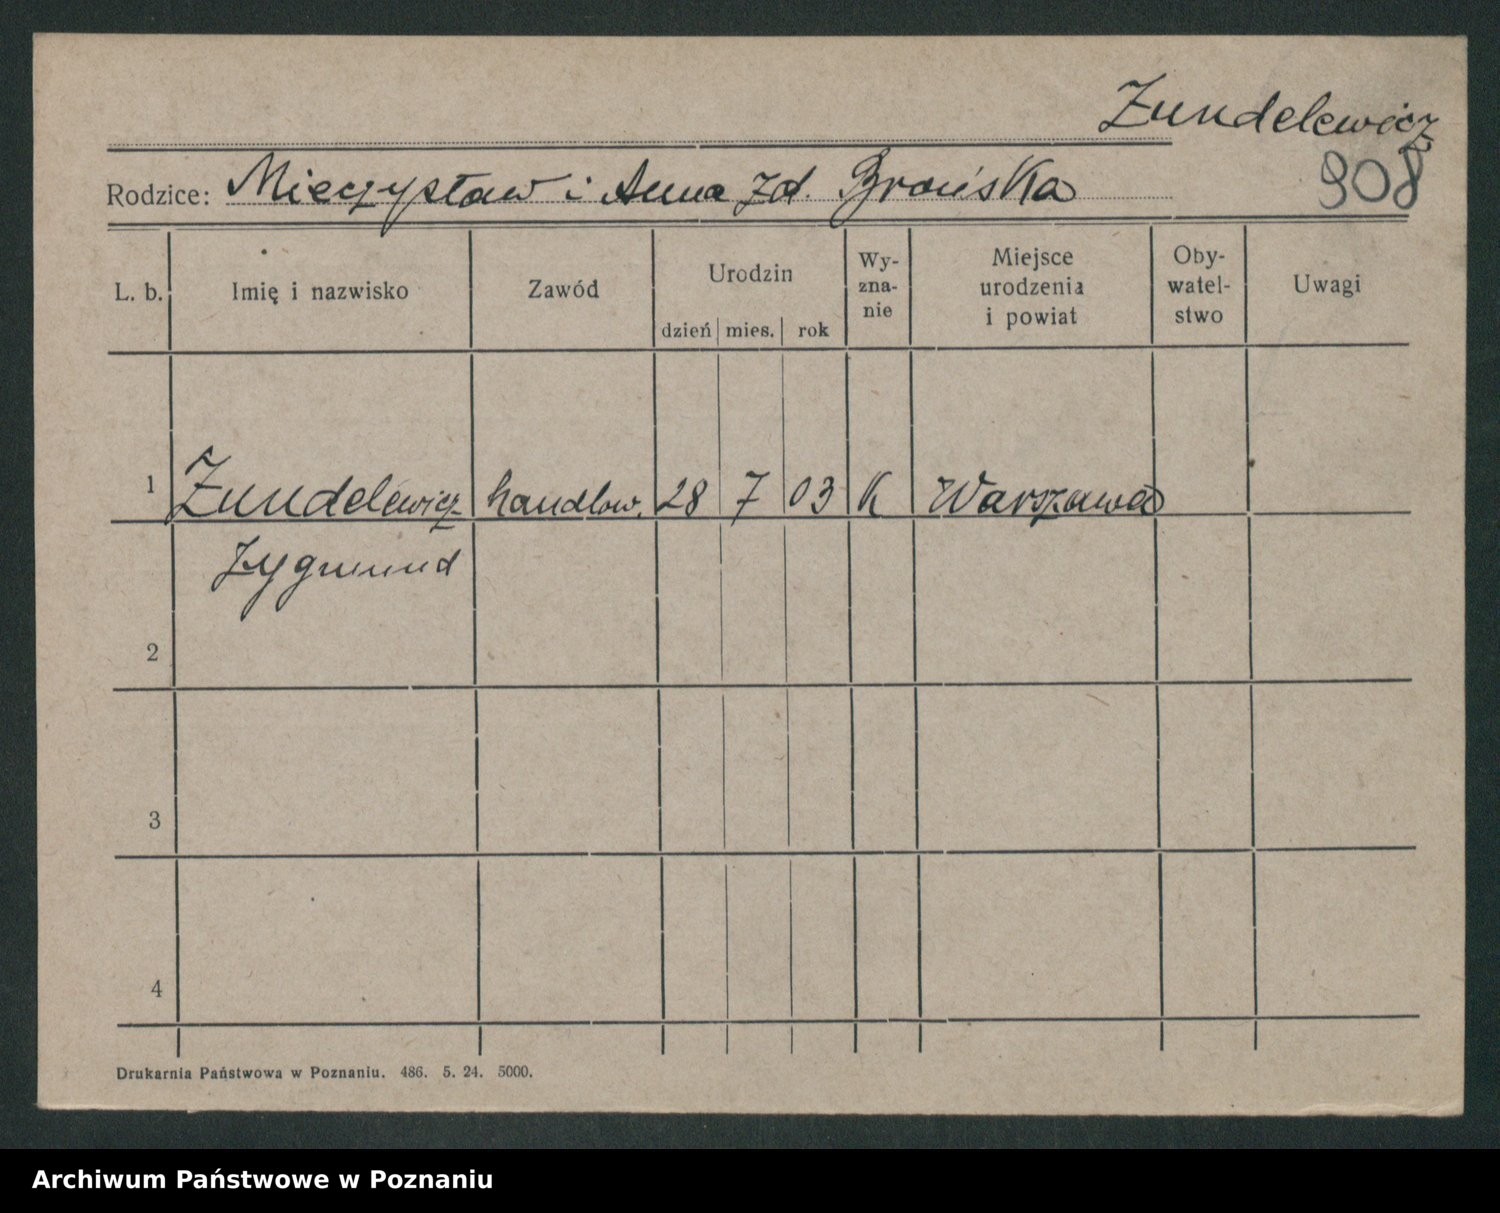 Zundelewicz
908
Rodzice: Mieczysław i Anna zd. Brońska
L. b. Imię i nazwisko Zawód Urodzin Wy- Miejsce Oby- Uwagi
zna- urodzenia watel-
dzień mies. rok nie i powiat stwo
1 Zundelewicz handlow. 28 7 03 K Warszawa
Zygmund
2
3
4
Drukarnia Państwowa w Poznaniu. 486. 5. 24. 5000.
Archiwum Państwowe w Poznaniu